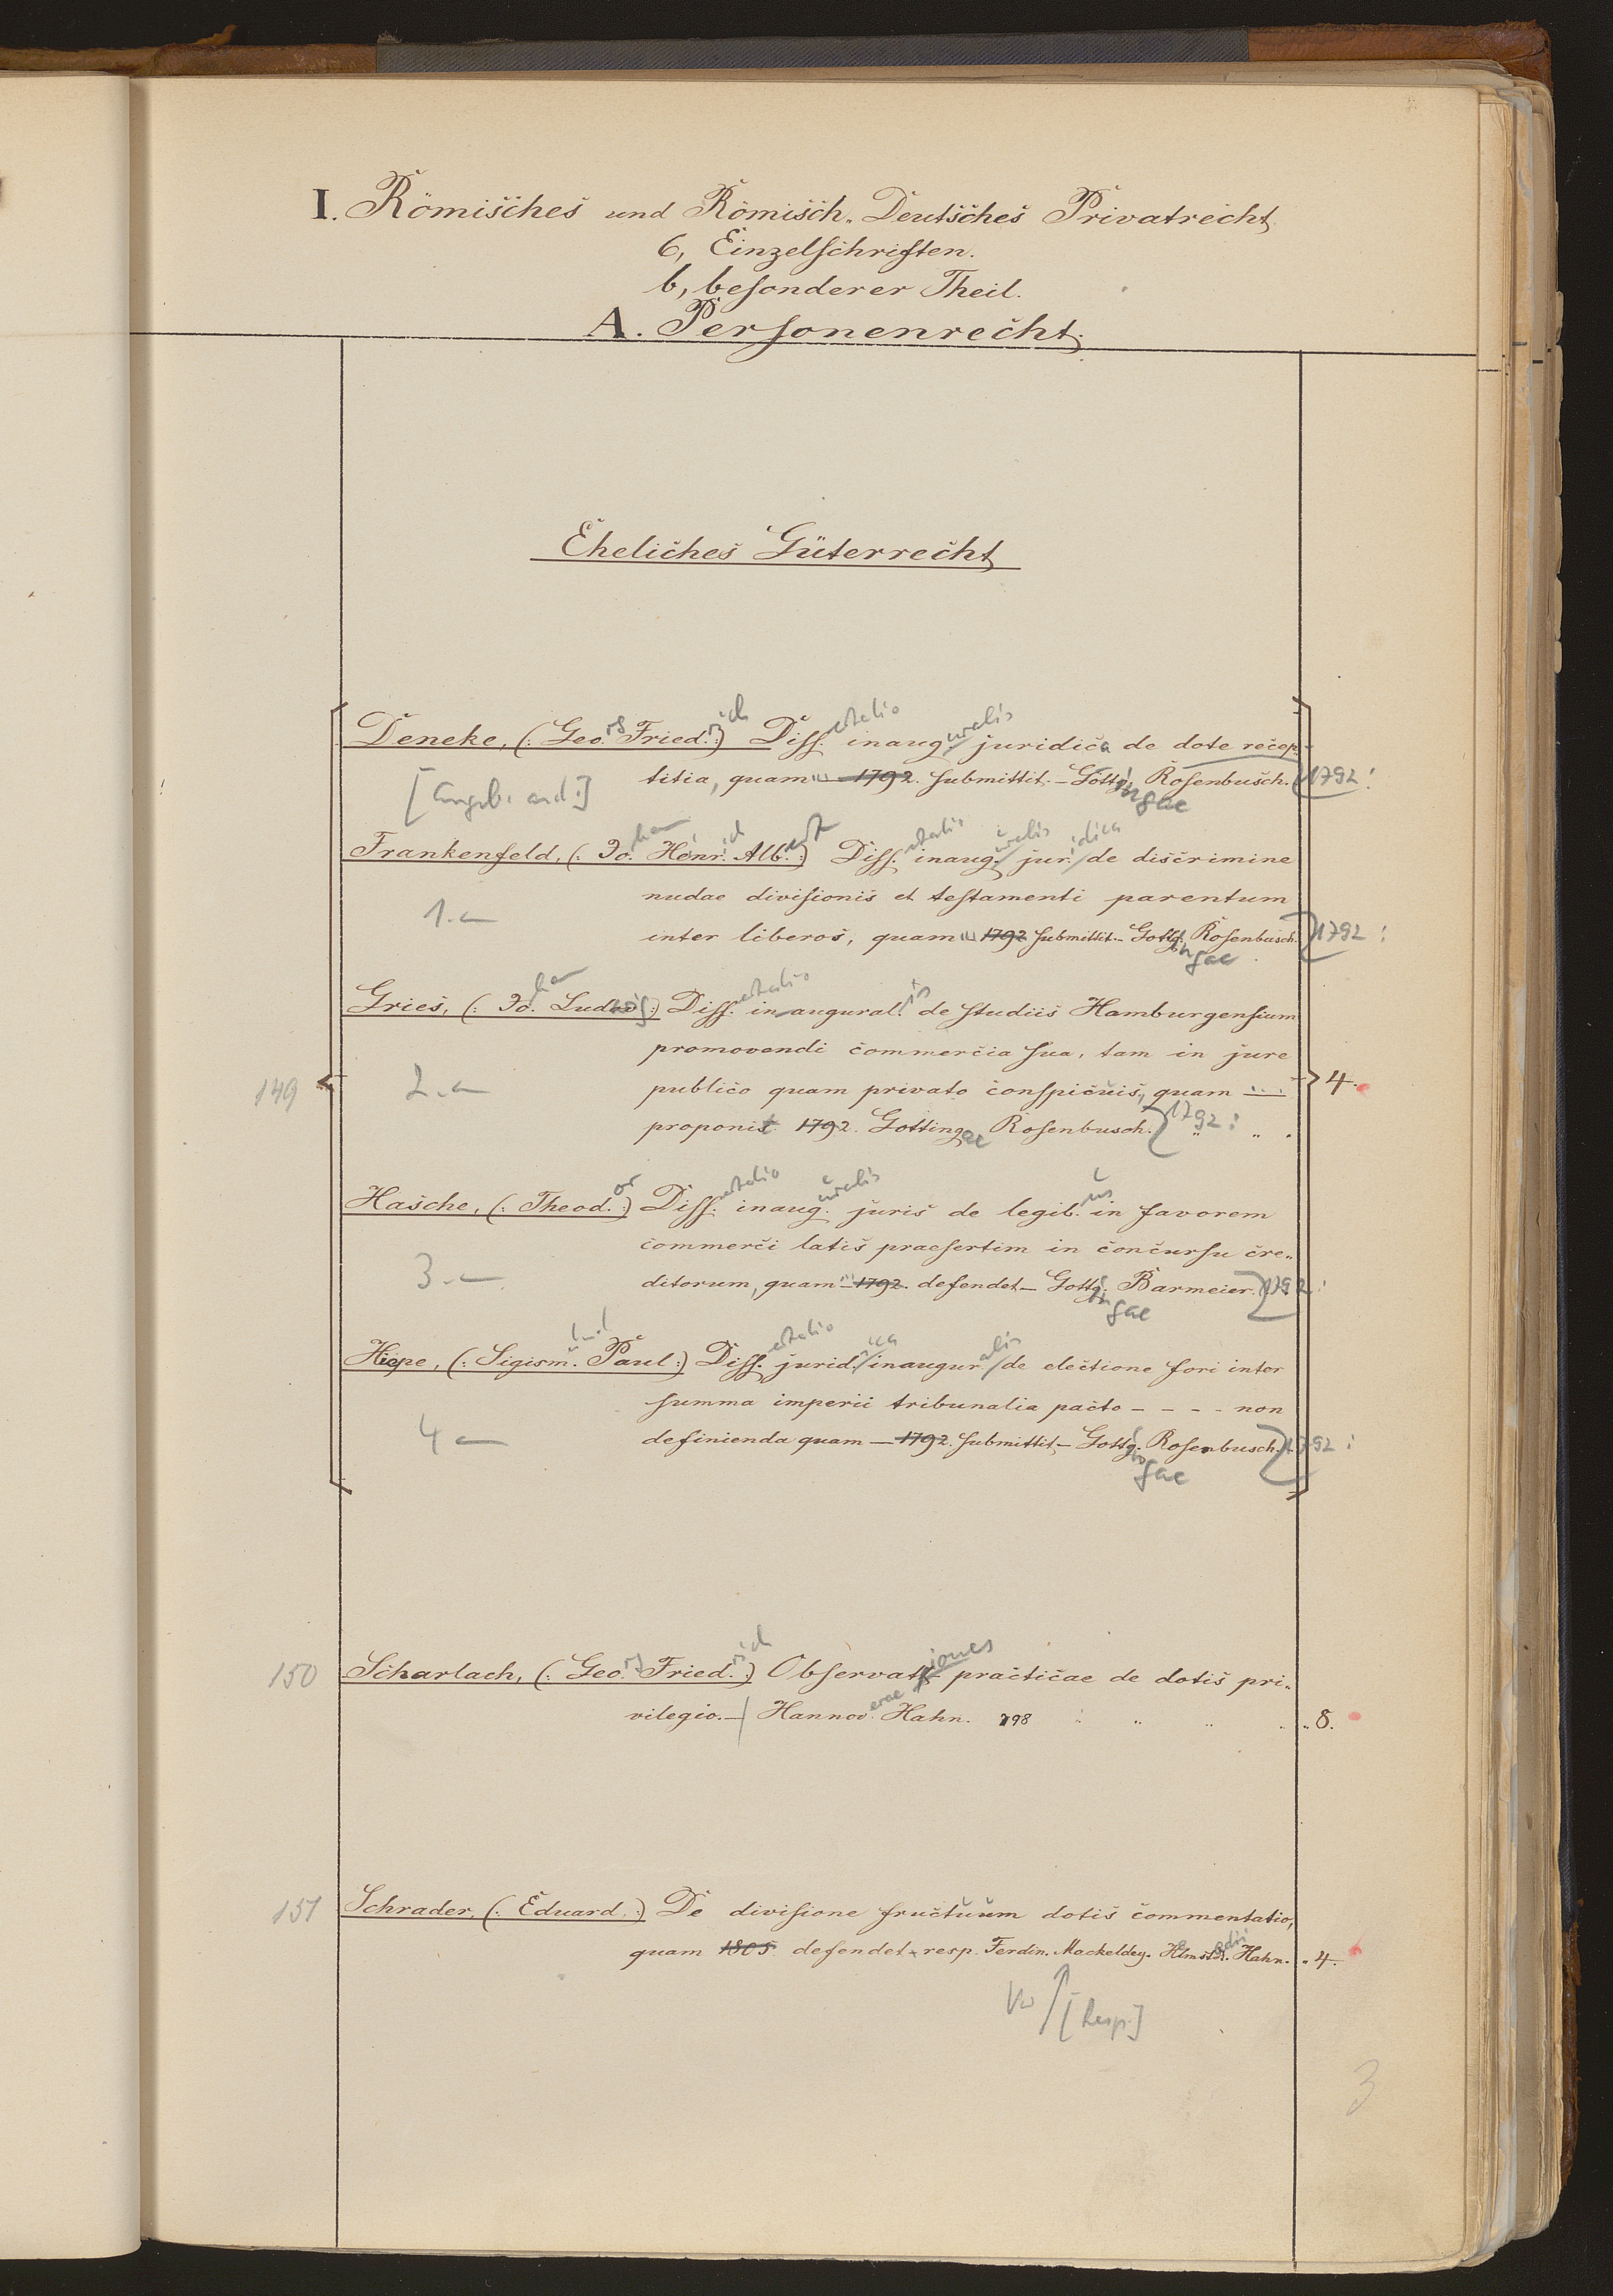 I. Römisches und Römisch-Deutsches Privatrecht.
6, Einzelschriften.
b, besonderer Theil.
A. Personenrecht.
Eheliches Güterrecht
Deneke, (: Georg Friedrich :) Dissertatio inauguralis juridica de dote recep-
titia, quam ... 1792. submittit. – Gottingae Rosenbusch. 1792:
Frankenfeld, (: Johan Henrich Albert :) Dissertatio inauguralis juridica de discrimine
nudae divisionis et testamenti parentum
1.
inter liberos, quam ... 1792 submittit – Gottingae Rosenbusch. 1792:
Gries, (: Johan Ludwig :) Dissertatio inauguralis de studiis Hamburgensium
promovendi commercia sua, tam in jure
149 2. publico quam privato conspicuis, quam ... 4.
proponit 1792. Gottingae Rosenbusch. 1792:
Hasche, (: Theodor :) Dissertatio inauguralis juris de legibus in favorem
commerci latis praesertim in concursu cre-
3. ditorum, quam ... 1792. defendet – Gottingae Barmeier. 1792:
Hiepe, (: Sigism. Paul :) Dissertatio juridica inauguralis de electione fori inter
summa imperii tribunalia pacto - - - - non
4 definienda quam – 1792. submittit – Gottingae Rosenbusch. 1792:
150 Scharlach, (: Georg Friedrich :) Observationes practicae de dotis pri-
vilegio. – Hannoverae Hahn. 798 8.
151 Schrader, (: Eduard :) De divisione fructuum dotis commentatio,
quam 1805. defendet resp. Ferdin. Mackeldey. Helmstadii Hahn. 4.
Vw [Resp.]
3